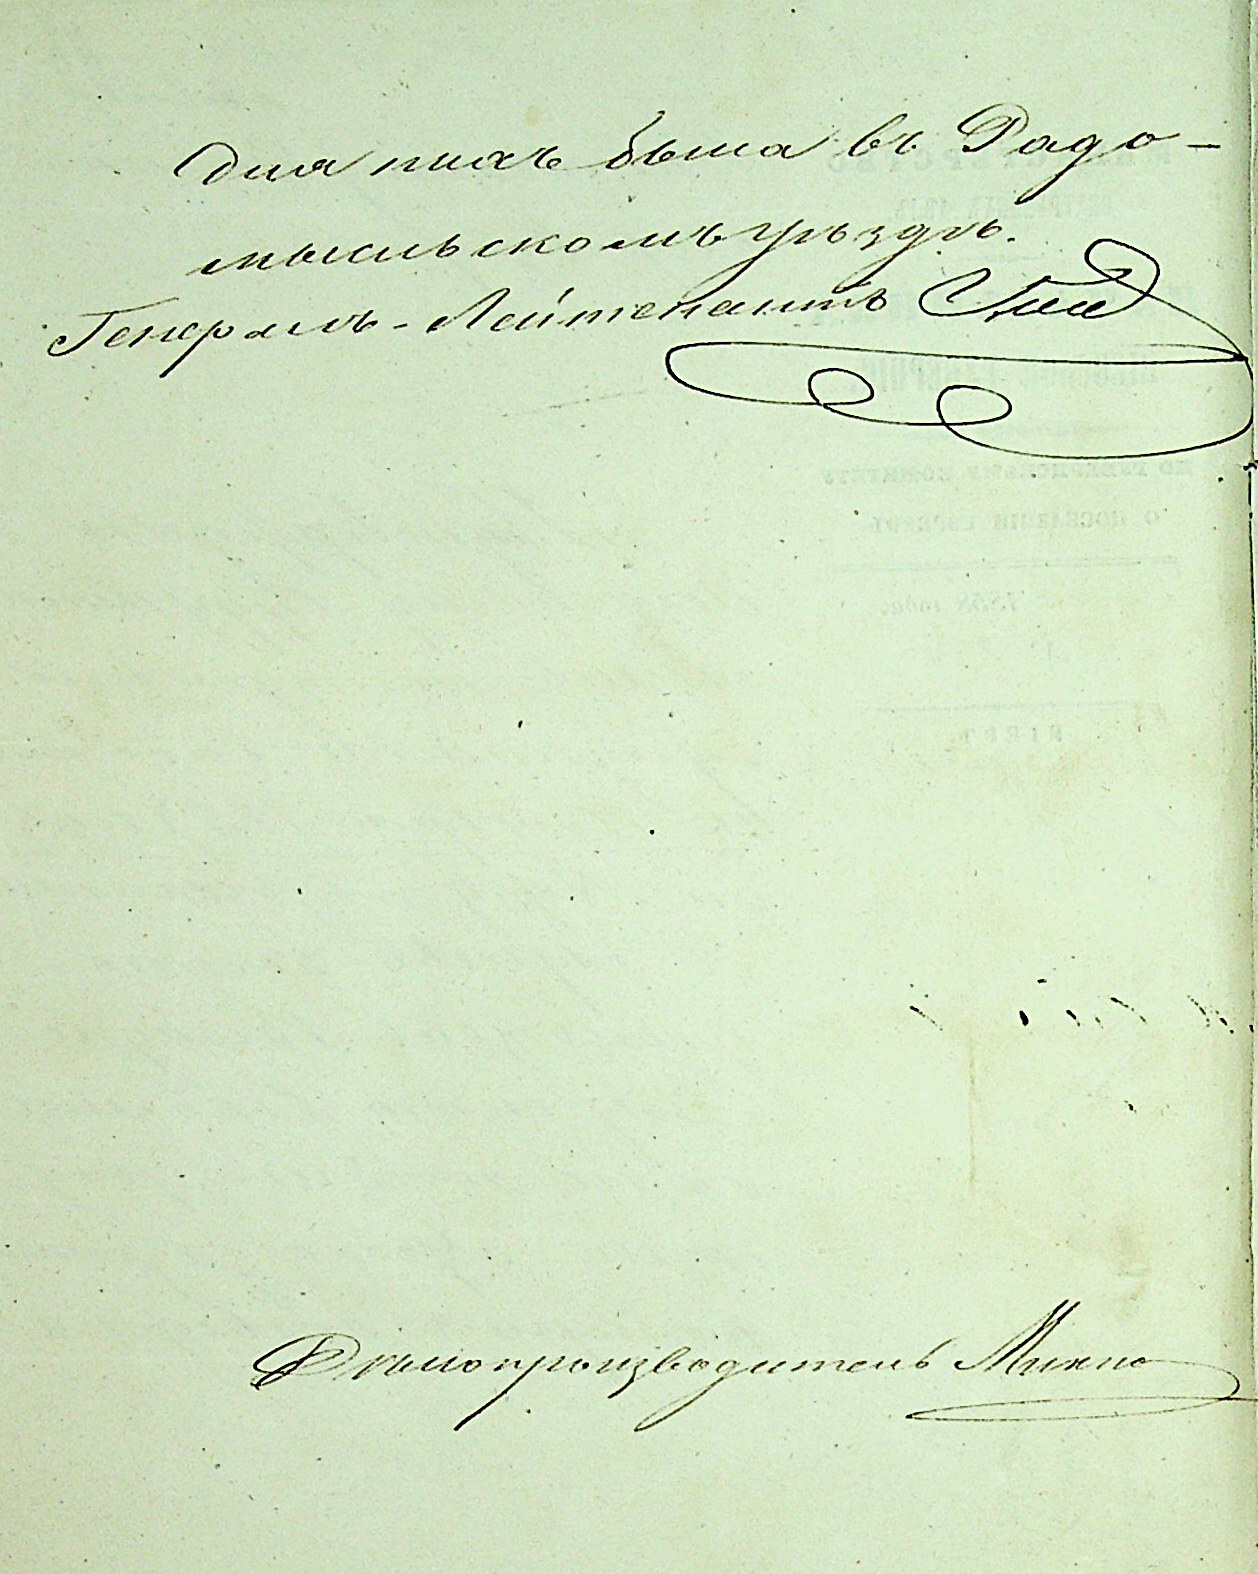 для нихъ была въ Радо-
мысльскомъ уѣздѣ.
Генералъ-Лейтенантъ
Дѣлопроизводитель